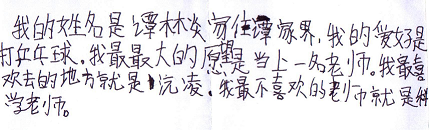 我的姓名是谭林炎家住谭家界,我的爱好是
打乒乓球。我最最大的愿望是当上一名老师。我最喜
欢去的地方就是沅凌。我最不喜欢的老师就是科
学老师。